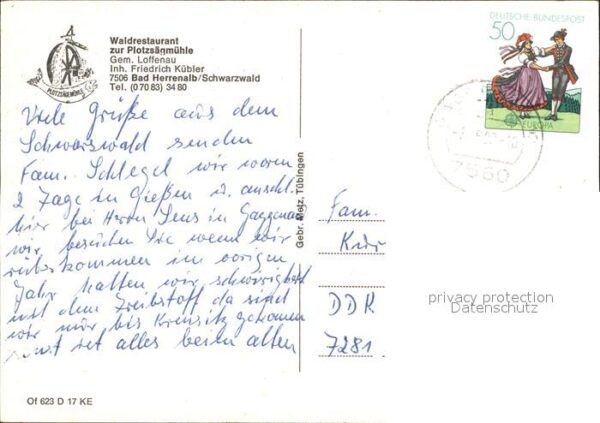 Waldrestaurant
zur Plotzsägmühle
Gem. Loffenau
Inh. Friedrich Kübler
7506 Bad Herrenalb/Schwarzwald
Tel. (0 70 83) 34 80
PLOTZSÄGEMÜHLE
DEUTSCHE BUNDESPOST
50
EUROPA
7560
Viele Grüße aus dem
Schwarzwald senden
Fam. Schlegel wir waren
2 Tage in Gießen u. anschl.
hier bei Herrn Sens in Gaggenau
wir besuchen Sie wenn wir
rüberkommen im vorigen
Jahr hatten wir schwirigkeit
mit dem Treibstoff da sind
wir nur bis gekommen
sonst ist alles beim alten
Gebr. Metz, Tübingen
Fam.
DDR
7281
privacy protection
Datenschutz
Of 623 D 17 KE